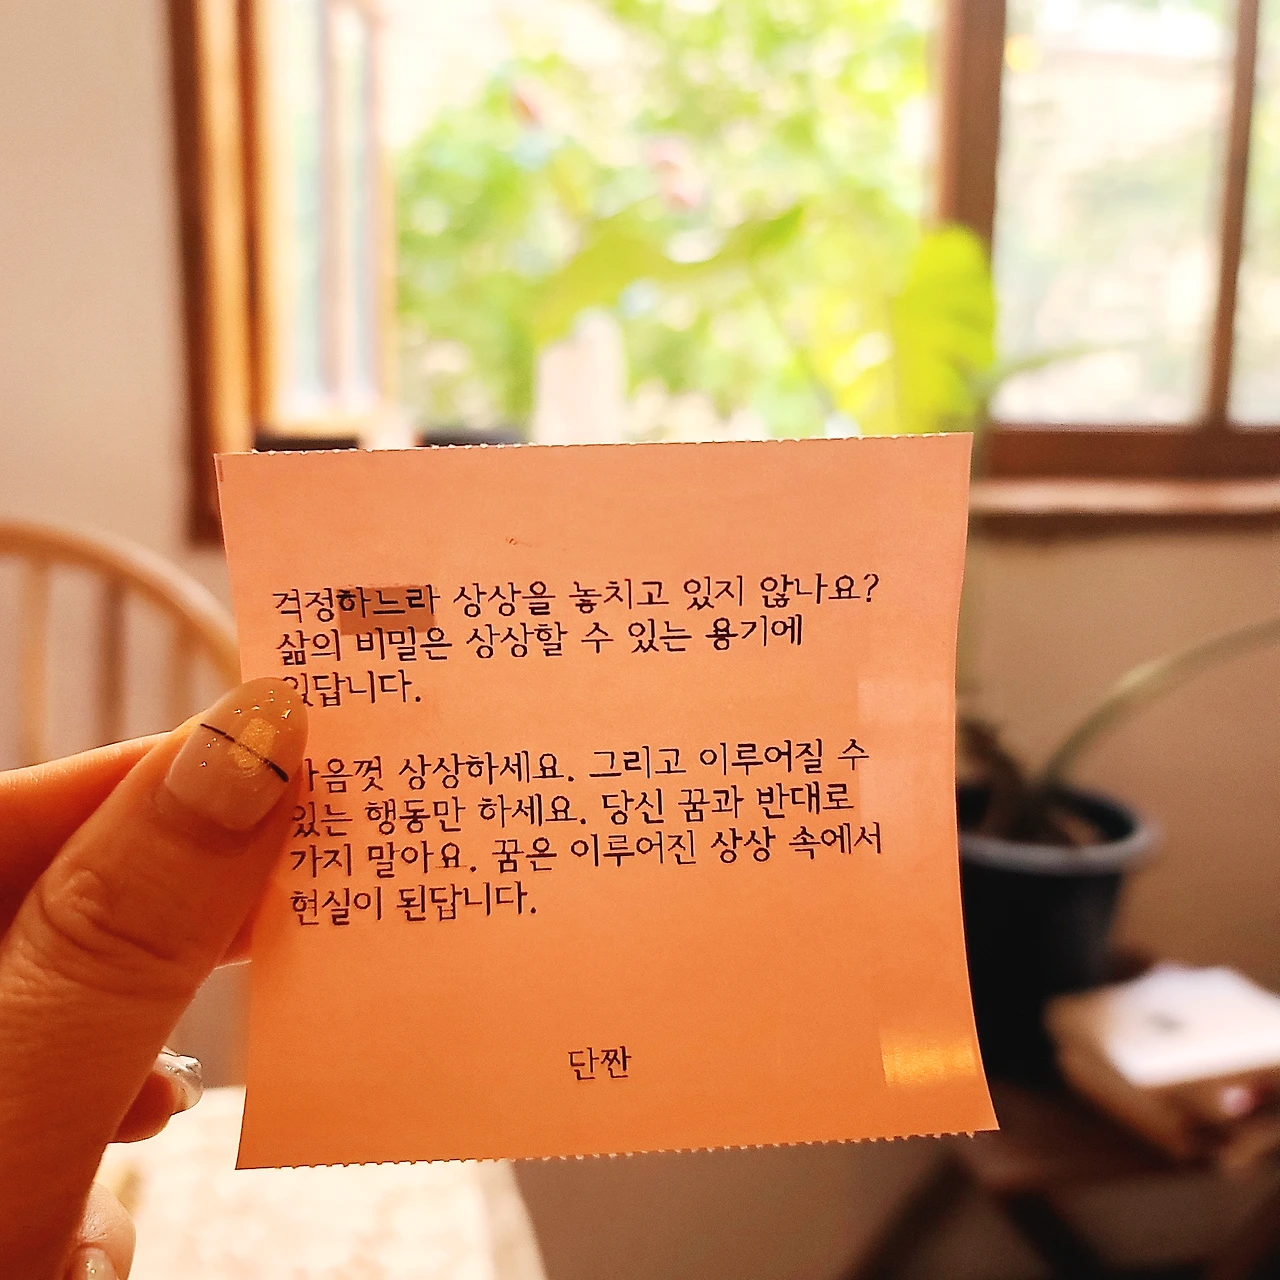 걱정하느라 상상을 놓치고 있지 않나요?
삶의 비밀은 상상할 수 있는 용기에
있답니다.
마음껏 상상하세요. 그리고 이루어질 수
있는 행동만 하세요. 당신 꿈과 반대로
가지 말아요. 꿈은 이루어진 상상 속에서
현실이 된답니다.
단짠